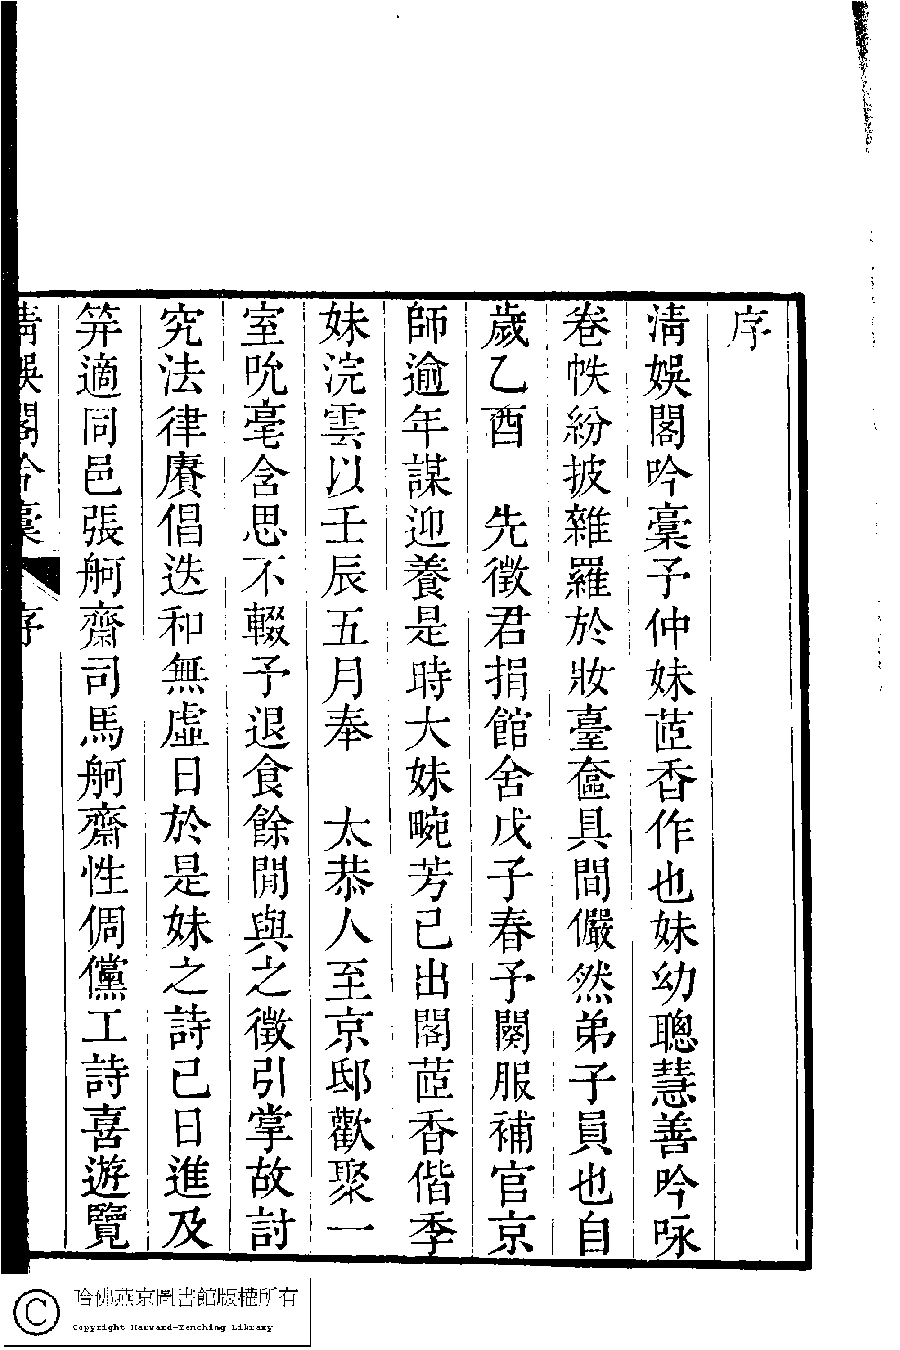 序
淸娛閣吟稾予仲妹茝香作也妹幼聰慧善吟咏
卷帙紛披雜羅於妝臺奩具間儼然弟子員也自
歲乙酉　先徵君捐館舍戊子春予闋服補官京
師逾年謀迎養是時大妹畹芳已出閣茝香偕季
妹浣雲以壬辰五月奉　太恭人至京邸歡聚一
室吮毫含思不輟予退食餘閒與之徵引掌故討
究法律賡倡迭和無虛日於是妹之詩已日進及
笄適同邑張舸齋司馬舸齋性倜儻工詩喜遊覽
淸娛閣吟稾　序
哈佛燕京圖書館版權所有
Copyright Harvard-Yenching Library